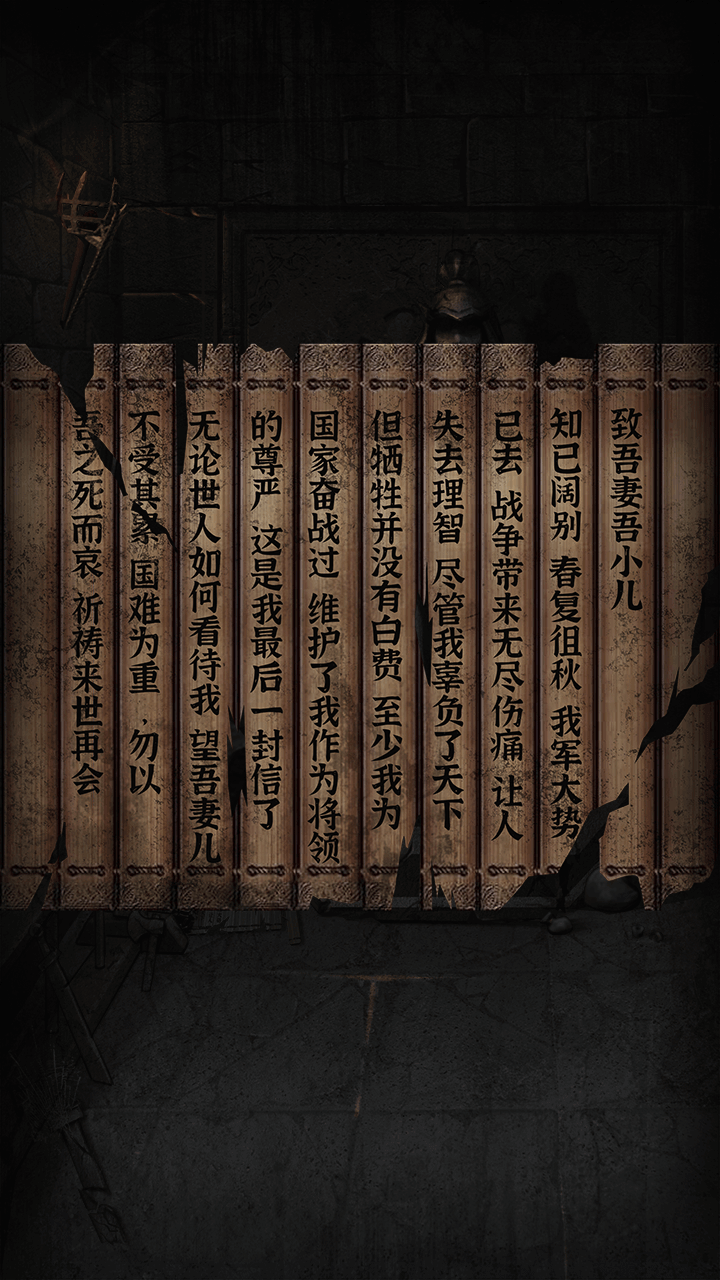 致吾妻吾小儿
知已阔别 春复徂秋 我军大势
已去 战争带来无尽伤痛 让人
失去理智 尽管我辜负了天下
但牺牲并没有白费 至少我为
国家奋战过 维护了我作为将领
的尊严 这是我最后一封信了
无论世人如何看待我 望吾妻儿
不受其累 国难为重，勿以
吾之死而哀 祈祷来世再会